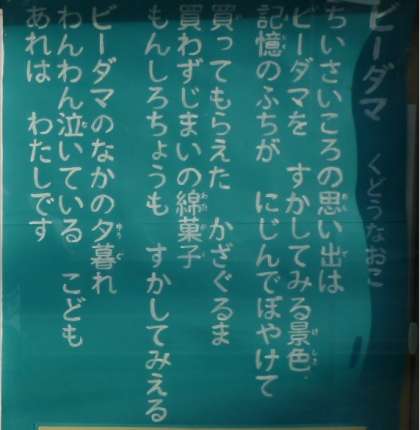 ビーダマ くどうなおこ
ちいさいころの思い出は
ビーダマを すかしてみる景色
記憶のふちが にじんでぼやけて
買ってもらえた かざぐるま
買わずじまいの綿菓子
もんしろちょうも すかしてみえる
ビーダマのなかの夕暮れ
わんわん泣いている こども
あれは わたしです